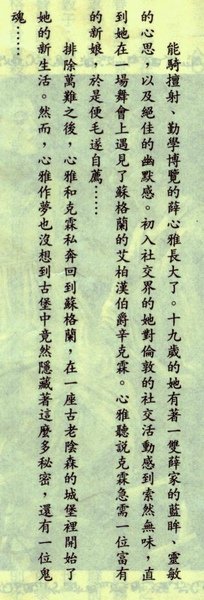 能騎擅射、勤學博覽的薛心雅長大了。十九歲的她有著一雙薛家的藍眸、靈敏
的心思，以及絕佳的幽默感。初入社交界的她對倫敦的社交活動感到索然無味，直
到她在一場舞會上遇見了蘇格蘭的艾柏漢伯爵辛克霖。心雅聽說克霖急需一位富有
的新娘，於是便毛遂自薦……
排除萬難之後，心雅和克霖私奔回到蘇格蘭，在一座古老陰森的城堡裡開始了
她的新生活。然而，心雅作夢也沒想到古堡中竟然隱藏著這麼多秘密，還有一位鬼
魂……